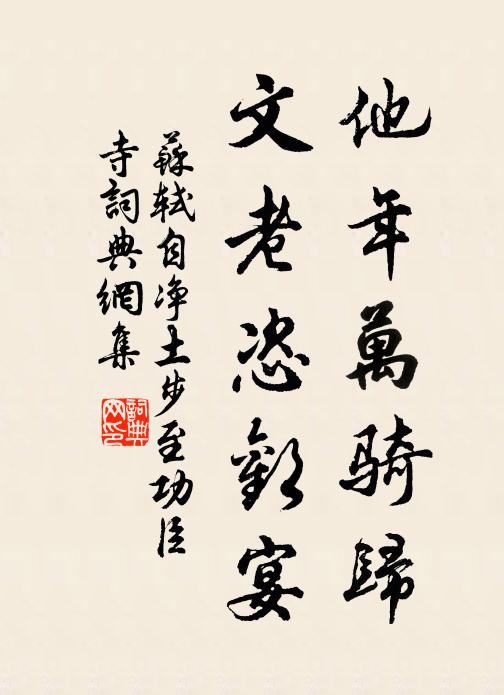 他年萬騎歸
文老恣歡宴
蘇軾自净土步至功臣
寺詞典網集
詞典
网印